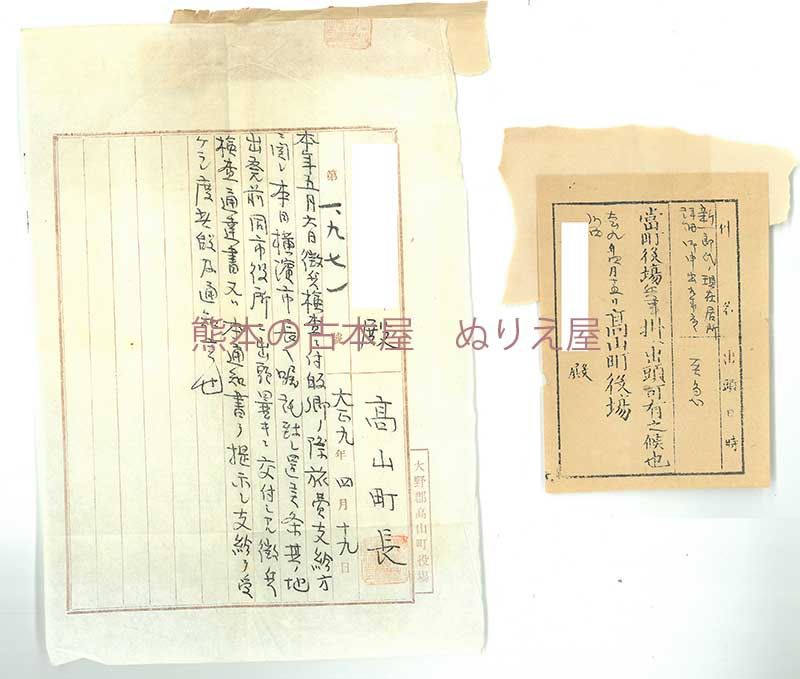 第一、九七一號
大正九年四月十九日
高山町長
殿
本年五月六日徴兵検査ニ付歸郷ノ際旅費支給方
ニ関シ本日横濱市長ヘ嘱託致シ置候条其ノ地
出発前同市役所ニ出頭曩キニ交付シタル徴兵
検査通達書又ハ本通知書ヲ提示シ支給ヲ受
ケラレ度此段及通知候也
大野郡高山町役場
用名
出頭日時
現在居所
至急
當町役場兵事掛ヘ出頭可有之候也
大正九年四月十五日
高山町役場
殿
熊本の古本屋 ぬりえ屋